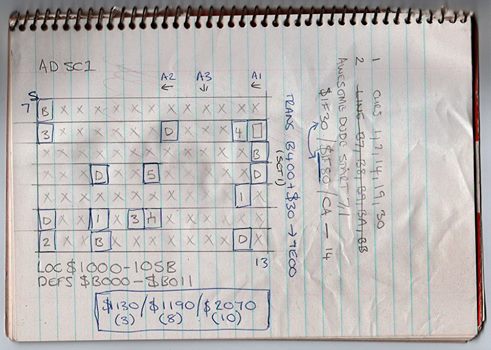 AD SC1
A2 A3 A1
S
7 B X X X X X X X X X X X X
3 X X X X X X D X X X 4
X X X X X X X X X X X B
X X X D X X 5 X X X X X D
X X X X X X X X X X X 1 X
D X X 1 X 3 4 X X X X X X
2 X X B X X X X X X X D X
13
LOC $1000-105B
DEFS $B000-$B011
$1130/$1190/$2070
(3) (8) (10)
TRANS B400+$30→7E00
(SC1)
1 CHRS 47,14,19,30
2 LINS B7,B8,B9,BA,BB
AWESOME DUDE START 7/1
$1F30/$1F80/CA — 14